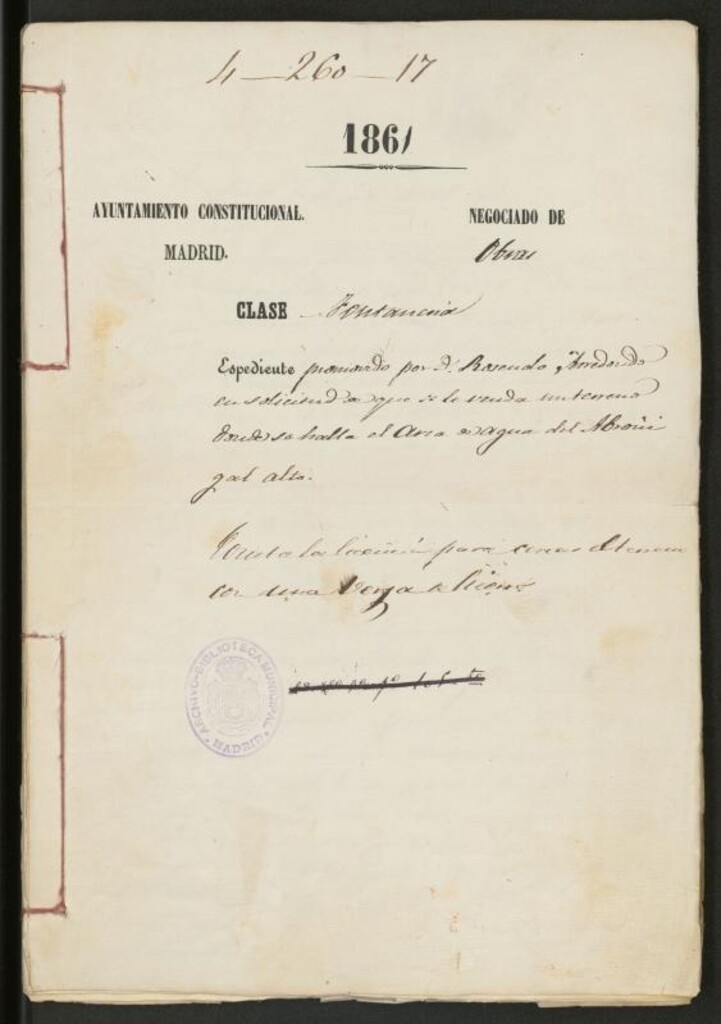 4 — 260 — 17
1861
AYUNTAMIENTO CONSTITUCIONAL.
MADRID.
NEGOCIADO DE
Obras
CLASE Fontaneria
Espediente promovido por D. Rosendo Arredondo
en solicitud de que se le venda un terreno
donde se halla el Arca de agua del Abroñi
gal alto.
la licencia para cercar el terreno
con una Verja de hierro
ARCHIVO-BIBLIOTECA MUNICIPAL
MADRID